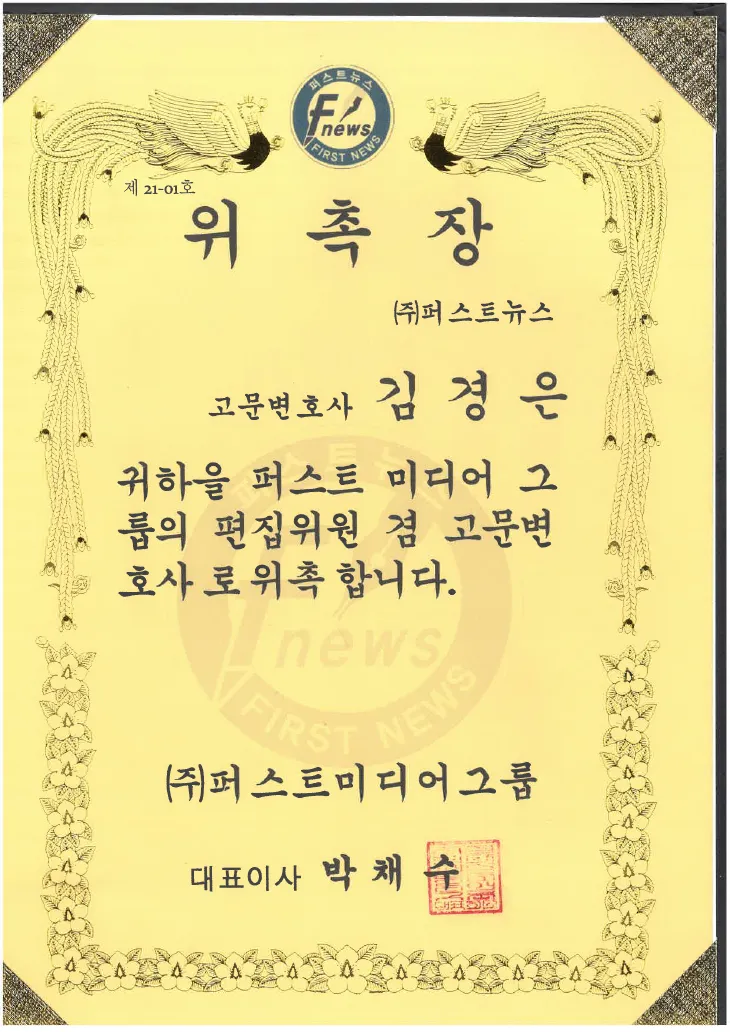 퍼스트뉴스
F news
FIRST NEWS
제 21-01호
위 촉 장
㈜퍼스트뉴스
고문변호사 김 경 은
귀하을 퍼스트 미디어 그
룹의 편집위원 겸 고문변
호사 로위촉 합니다.
퍼스트뉴스
F news
FIRST NEWS
㈜퍼스트미디어그룹
대표이사 박 채 수